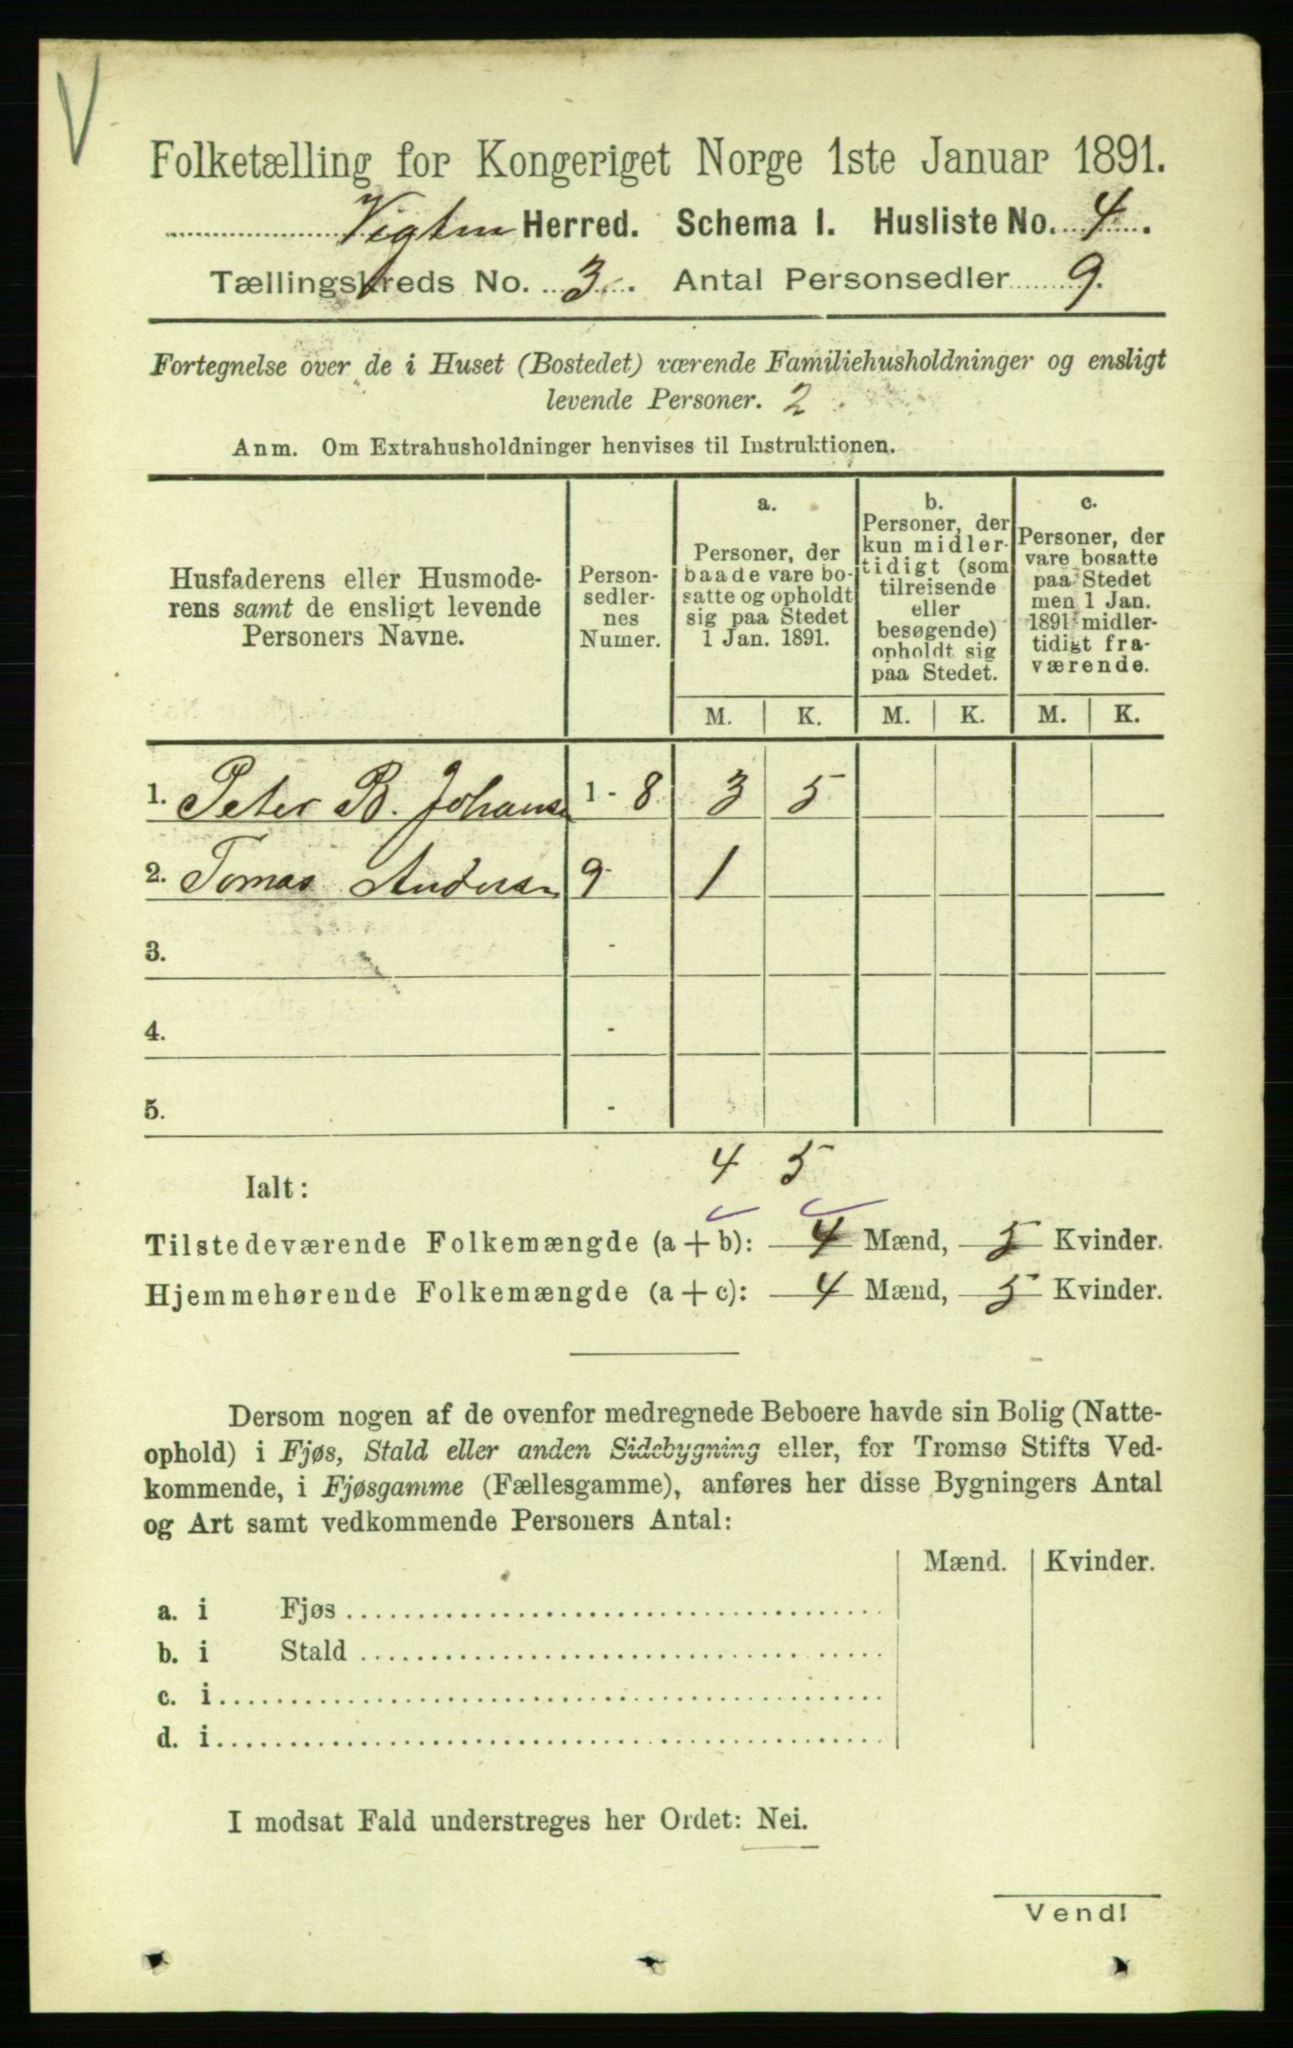 V
Folketælling for Kongeriget Norge 1ste Januar 1891.
Vigten Herred. Schema I. Husliste No. 4.
Tællingskreds No. 3. Antal Personsedler 9.
Fortegnelse over de i Huset (Bostedet) værende Familiehusholdninger og ensligt
levende Personer. 2
Anm. Om Extrahusholdninger henvises til Instruktionen.
Husfaderens eller Husmode-
rens samt de ensligt levende
Personers Navne.
Person-
sedler-
nes
Numer.
a.
Personer, der
baade vare bo-
satte og opholdt
sig paa Stedet
1 Jan. 1891.
b.
Personer, der
kun midler-
tidigt (som
tilreisende
eller
besøgende)
opholdt sig
paa Stedet.
c.
Personer, der
vare bosatte
paa Stedet
men 1 Jan.
1891 midler-
tidigt fra-
værende.
M. K. M. K. M. K.
1. Peter B. Johansen 1 - 8 3 5
2. Tomas Andersen 9 - 1
3. -
4. -
5. -
4 5
Ialt:
Tilstedeværende Folkemængde (a + b): 4 Mænd, 5 Kvinder.
Hjemmehørende Folkemængde (a + c): 4 Mænd, 5 Kvinder.
Dersom nogen af de ovenfor medregnede Beboere havde sin Bolig (Natte-
ophold) i Fjøs, Stald eller anden Sidebygning eller, for Tromsø Stifts Ved-
kommende, i Fjøsgamme (Fællesgamme), anføres her disse Bygningers Antal
og Art samt vedkommende Personers Antal:
Mænd. Kvinder.
a. i Fjøs
b. i Stald
c. i
d. i
I modsat Fald understreges her Ordet: Nei.
Vend!